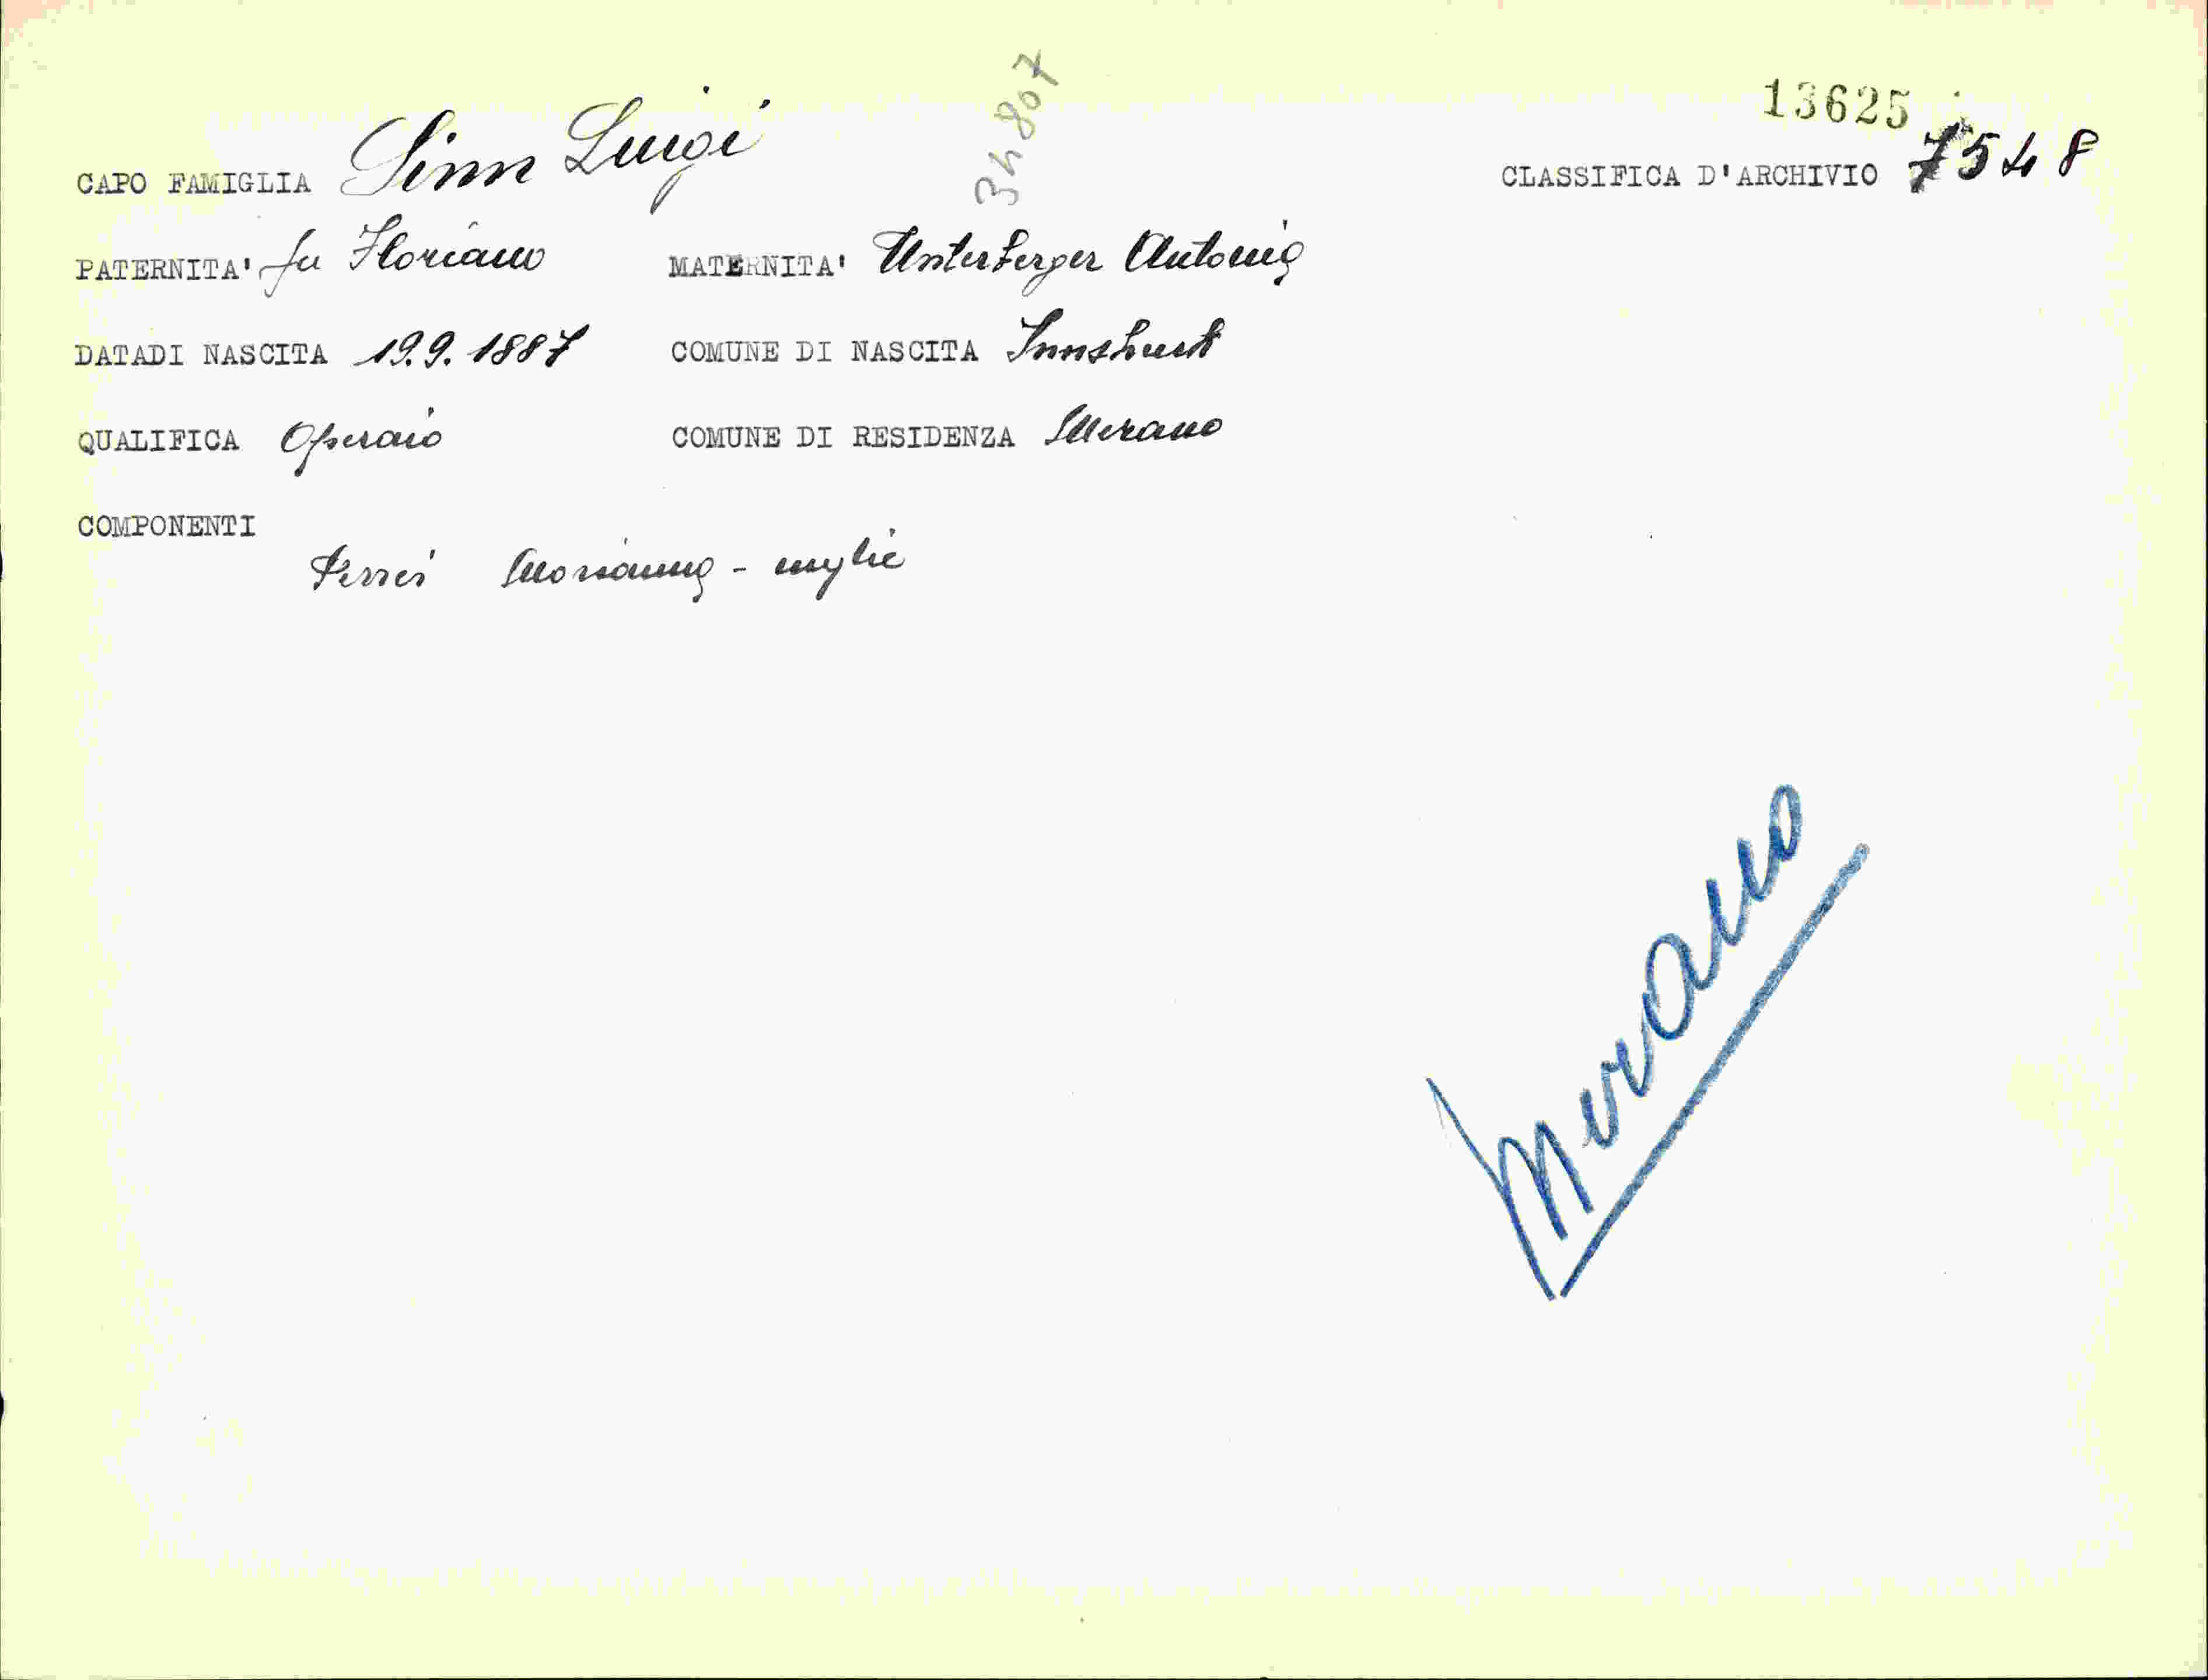 34807
13625
CAPO FAMIGLIA Sinn Luigi
CLASSIFICA D'ARCHIVIO 7548
PATERNITA' fu Floriano MATERNITA' Unterberger Antonia
DATADI NASCITA 19.9.1887 COMUNE DI NASCITA Innsbruck
QUALIFICA Operaio COMUNE DI RESIDENZA Merano
COMPONENTI
Marianna - moglie
Merano